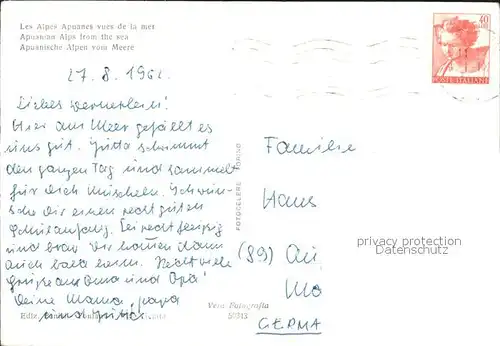 Les Alpes Apuanes vues de la mer
Apusman Alps from the sea
Apuanische Alpen vom Meere
40
POSTE ITALIANE
27.8.1962.
Liebes Wernerlein!
Hier am Meer gefällt es
uns gut. Gitta schwimmt
den ganzen Tag und sammelt
für dich Muscheln. Ich wün-
sche dir einen recht guten
Schulanfang. Sei recht fleißig
und brav. Wir kommen dann
auch bald heim. Recht viele
Grüße an Oma und Opa!
Deine Mama, papa
und Gitta
FOTOCELERE TORINO
Familie
Hans
(89)
privacy protection
Datenschutz
GERMA
Vera Fotografia
Ediz.